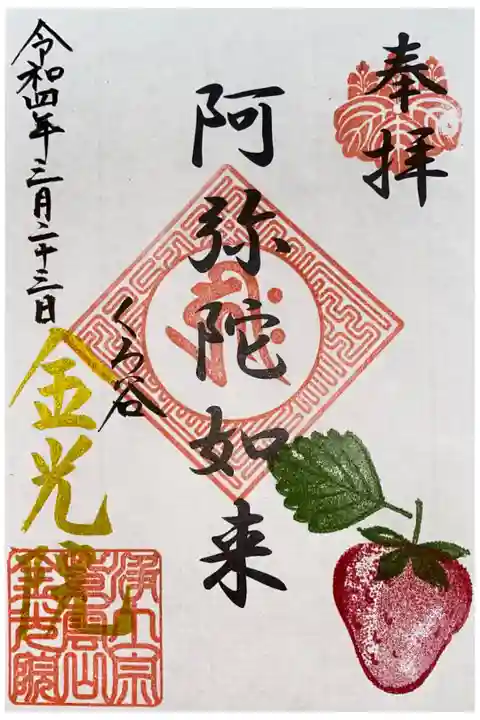 奉拝
阿弥陀如来
くろ谷
令和四年三月二十三日
金光院
浄土宗
紫雲山
金光院